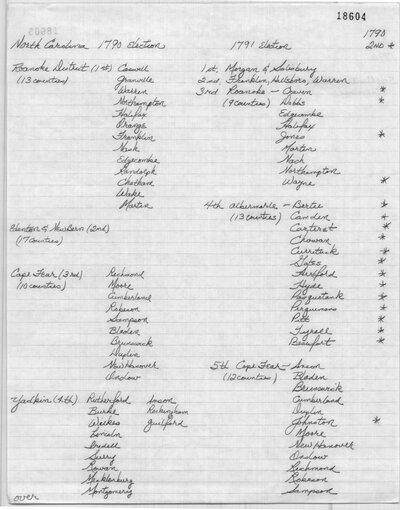 18604
1790
North Carolina 1790 Election 1791 Election 2ND *
Roanoke District (1st) Caswell 1st Morgan & Salisbury
(13 counties) Granville 2nd Franklin, Hillsboro, Warren
Warren 3rd Roanoke - Craven *
Northampton (9 counties) Dobbs *
Halifax Edgecombe
Orange Halifax
Franklin Jones *
Nash Martin
Edgecombe Nash
Randolph Northampton
Chatham Wayne *
Wake
Martin 4th Albemarle - Bertie *
(13 counties) Camden *
Edenton & New Bern (2nd) Carteret *
(17 counties) Chowan *
Currituck *
Gates *
Cape Fear (3rd) Richmond Hertford *
(10 counties) Moore Hyde *
Cumberland Pasquotank *
Robeson Perquimans *
Sampson Pitt *
Bladen Tyrrell *
Brunswick Beaufort *
Duplin
New Hanover 5th Cape Fear - Anson
Onslow (12 counties) Bladen
Brunswick
Yadkin (4th) Rutherford Anson Cumberland
Burke Rockingham Duplin
Wilkes Guilford Johnston *
Lincoln Moore
Iredell New Hanover
Surry Onslow
Rowan Richmond
Mecklenburg Robeson
Montgomery Sampson
over